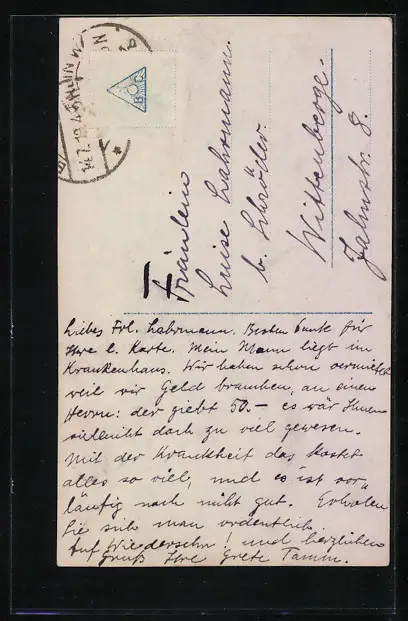 Fräulein
Luise Lahrmann.
b. Schröder.
Wittenberge.
Jahnstr. 8.
Liebes Frl. Lahrmann. Besten Dank für
Ihre l. Karte. Mein Mann liegt im
Krankenhaus. Wir haben schon vermietet
weil wir Geld brauchen, an einen
Herrn: der giebt 50.– es wär Ihnen
vielleicht doch zu viel gewesen.
Mit der Krankheit das kostet
alles so viel, und es ist vor„
läufig noch nicht gut. Erholen
Sie sich man ordentlich.
Auf Wiedersehn! und herzlichen
Gruß Ihre Grete Tamm.